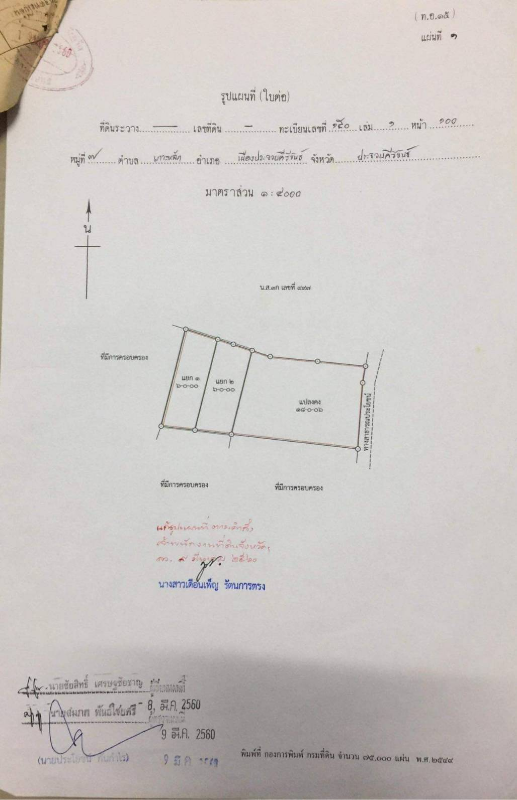 (ท.อ.๓๕)
แผ่นที่ ๑
รูปแผนที่ (ใบต่อ)
ที่ดินระวาง — เลขที่ดิน – ทะเบียนเลขที่ ๑๕๐ เล่ม ๑ หน้า ๑๐๐
หมู่ที่ ๗ ตำบล เกาะหลัก อำเภอ เมืองประจวบคีรีขันธ์ จังหวัด ประจวบคีรีขันธ์
มาตราส่วน ๑ : ๔๐๐๐
น
น.ส.๓ก เลขที่
ที่มีการครอบครอง
แยก ๑
๖-๐-๐๐
แยก ๒
๖-๐-๐๐
แปลงคง
๑๘-๐-๐๖
ทางสาธารณประโยชน์
ที่มีการครอบครอง
ที่มีการครอบครอง
นางสาวเดือนเพ็ญ รัตนการตรง
นายชัยสิทธิ์ เศรษฐชัยชาญ
8, มี.ค. 2560
9 มี.ค. 2560
พิมพ์ที่ กองการพิมพ์ กรมที่ดิน จำนวน ๗๕,๐๐๐ แผ่น พ.ศ.๒๕๔๙